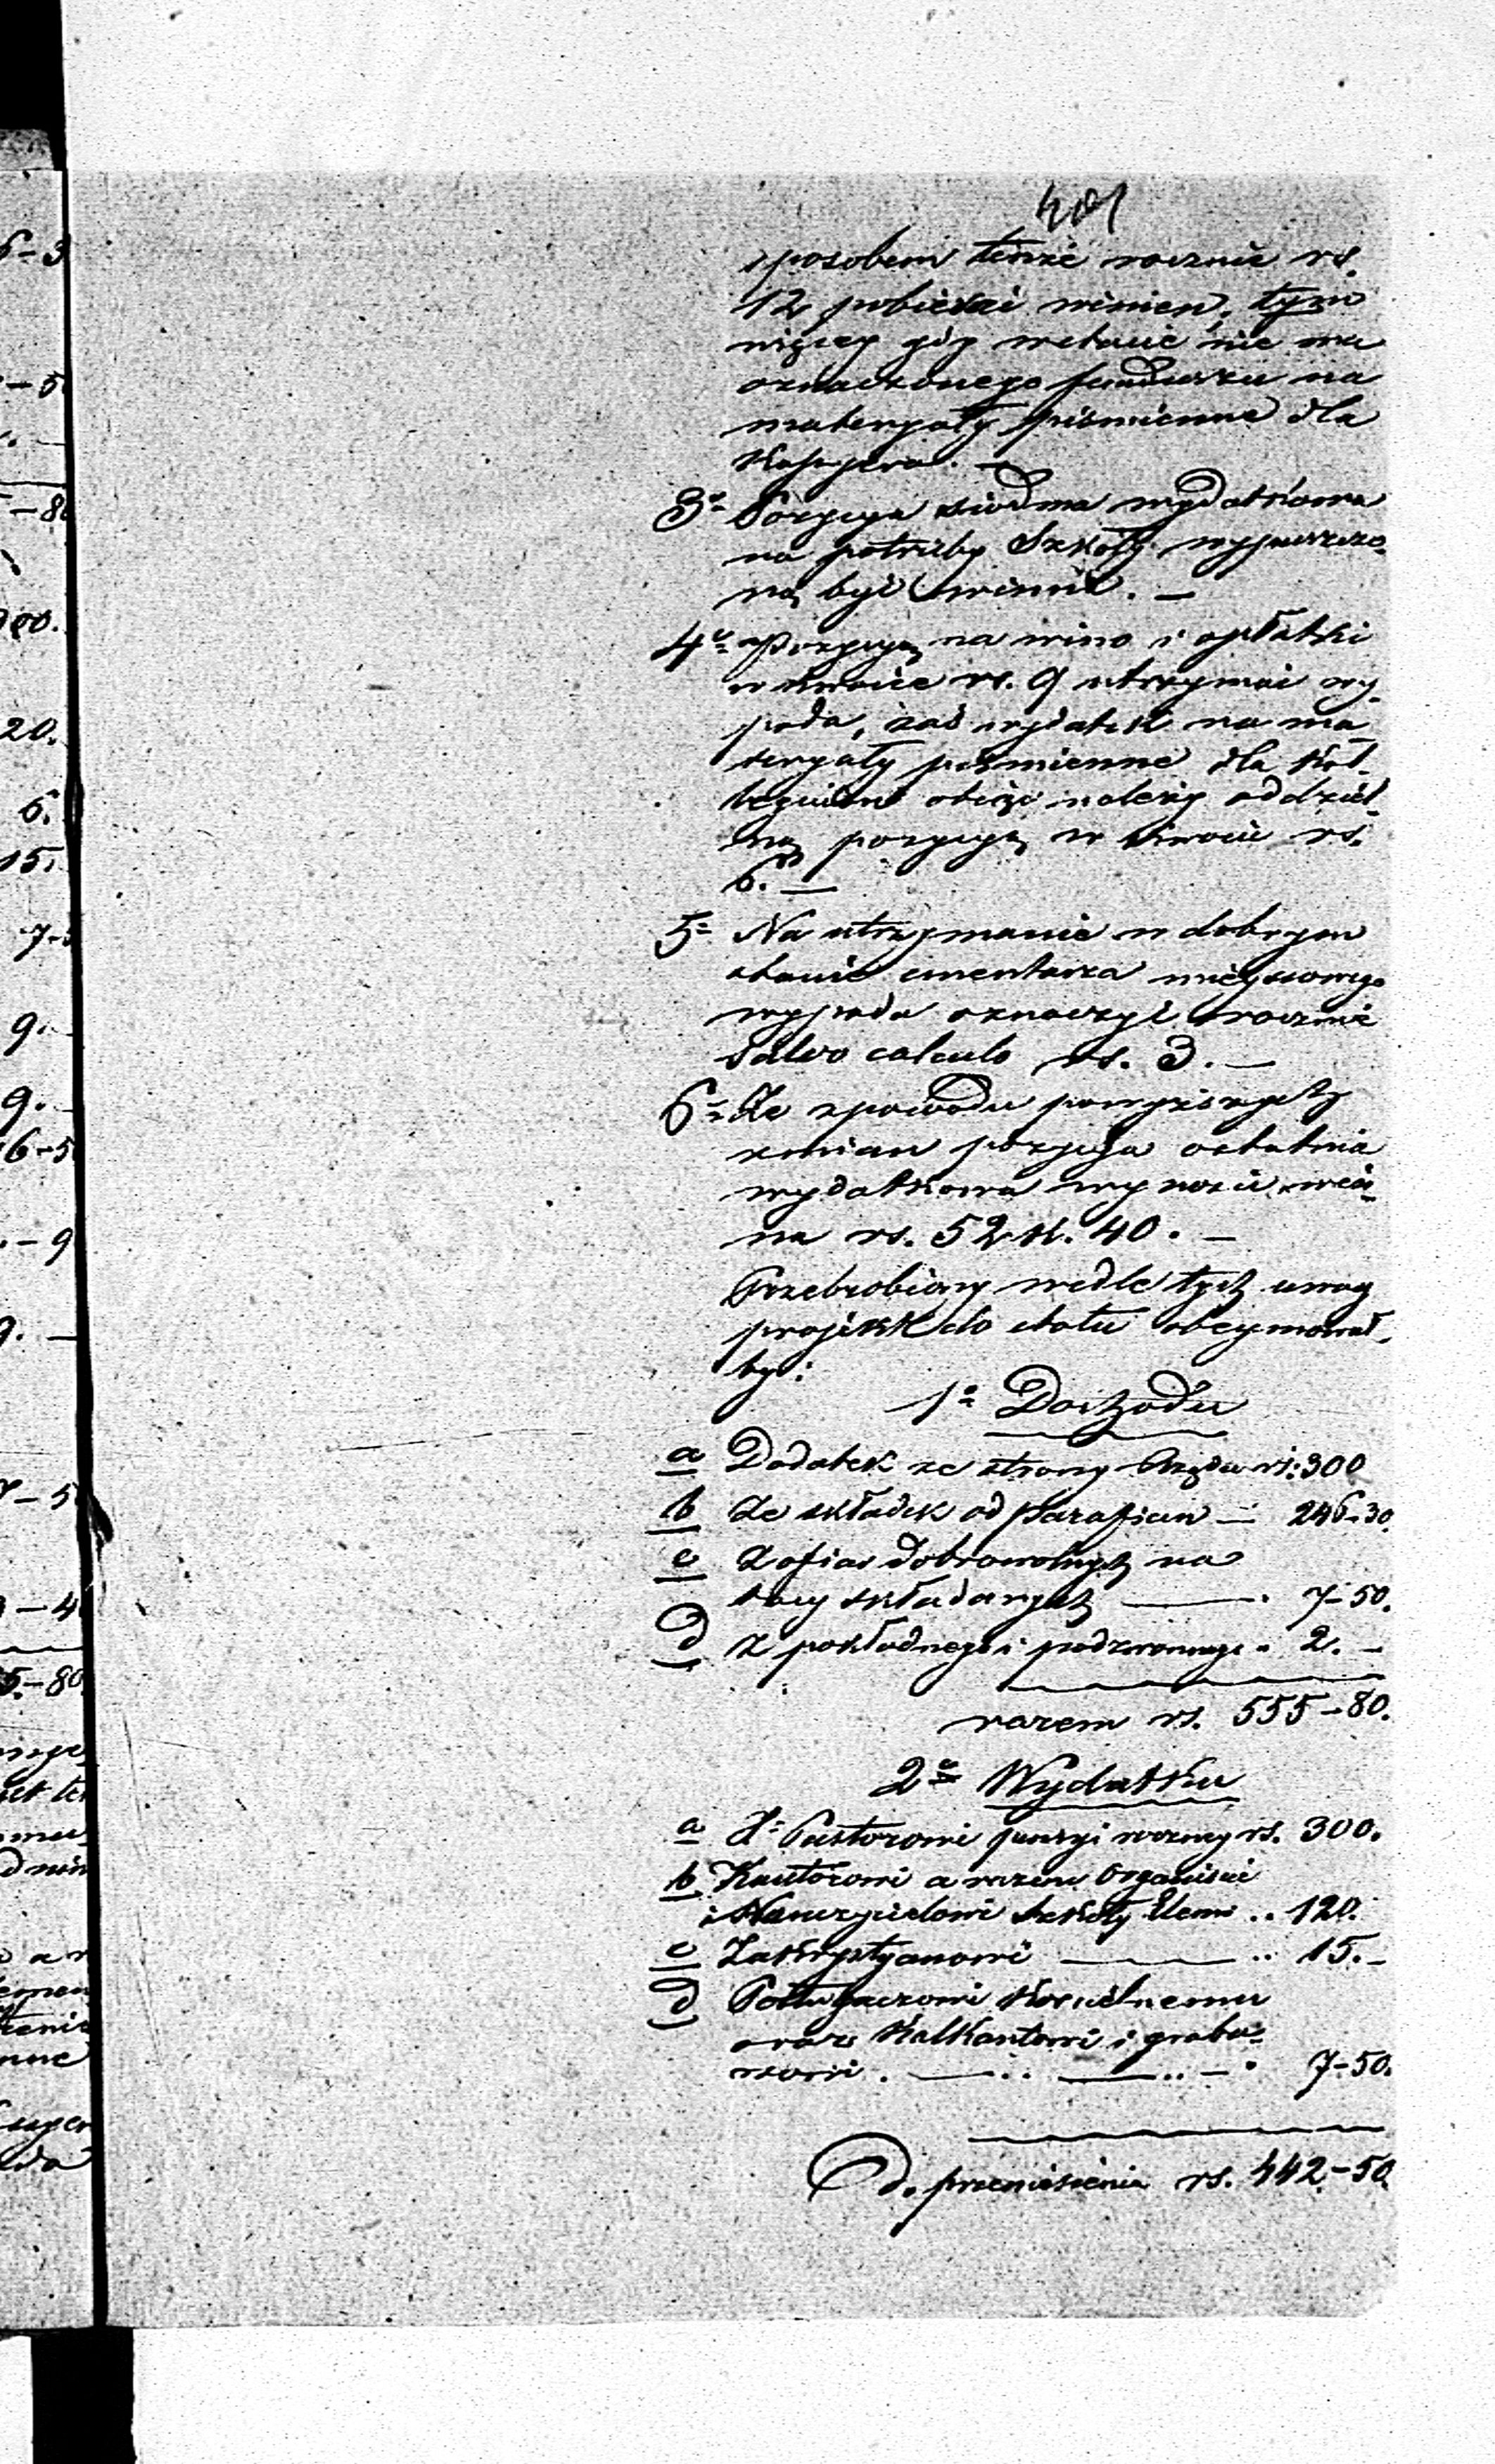 401
sposobem tenże rocznie rs.
12 pobierać winien, tym
więcej gdy w etacie nie ma
oznaczonego funduszu na
materyały piśmienne dla
Kassyera. —
3º Pozycya siódma wydatkowa
na potrzeby Szkoły wypuszczo-
ną być winna. —
4º Pozycyą na wino i opłatki
w kwocie rs. 9 utrzymać wy-
pada, zaś wydatek na ma-
teryały piśmienne dla Kol-
legium objąć należy oddziel-
ną pozycyą w kwocie rs.
6. —
5º Na utrzymanie w dobrym
stanie cmentarza miejscowego
wypada oznaczyć rocznie
salvo calculo rs. 3. —
6º Że z powodu powyższych
zmian pozycya ostatnia
wydatkowa wynosić win-
na rs. 52 k. 40. —
Przebrobiony wedle tych uwag
projekt do etatu obeymował-
by:
1º Dochodu
a Dodatek ze strony Rządu rs. 300
b Ze składek od parafian — 246-30.
c Z ofiar dobrowolnych na
tacy składanych — 7-50.
d Z pokładnego i podzwonnego „ 2. —
razem rs. 555-80.
2º Wydatku
a X. Pastorowi pensyi roczney rs. 300.
b Kantorowi a razem Organiście
i Nauczycielowi Szkoły Elem: .. 120.
c Zakrystyanowi — .. 15. —
d Posługaczowi Kościelnemu
oraz Kalkantowi i graba-
rzowi . — .. — .. — . 7-50.
Do przeniesienia rs. 442.-50.
6-3
-5
-80
20.
6.
15.
7-
9.
9.
6-5
-9
9. —
7-5
-4
5.-80